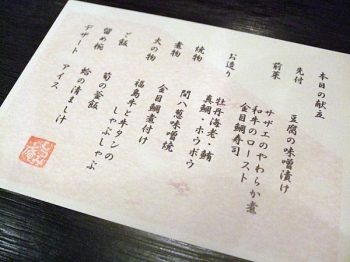 本日の献立
先付 豆腐の味噌漬け
前菜 サザエのやわらか煮
和牛のロースト
金目鯛寿司
お造り 牡丹海老・鮪
真鯛・ホウボウ
焼物 間八葱味噌焼
煮物 金目鯛煮付け
火の物 福島牛と牛タンの
しゃぶしゃぶ
ご飯 筍の釜飯
留め椀 蛤の清まし汁
デザート アイス